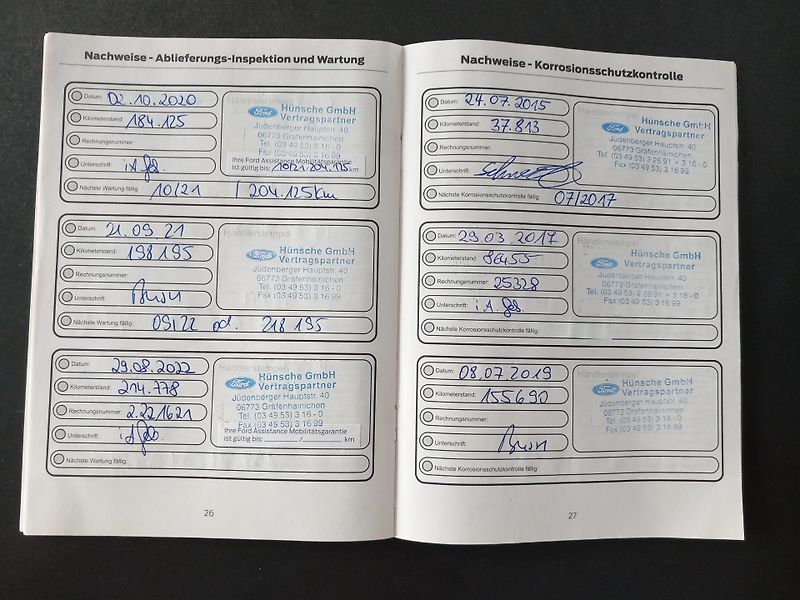 Nachweise - Ablieferungs-Inspektion und Wartung
Datum: 02.10.2020
Kilometerstand: 184.125
Rechnungsnummer:
Unterschrift: i.A.
Händlerstempel
Ford
Hünsche GmbH
Vertragspartner
Jüdenberger Hauptstr. 40
06773 Gräfenhainichen
Tel. (03 49 53) 3 16 - 0
Fax (03 49 53) 3 16 99
Ihre Ford Assistance Mobilitätsgarantie
ist gültig bis: 10/21 204.125 km
Nächste Wartung fällig: 10/21 / 204.125 km
Datum: 21.09.21
Kilometerstand: 198195
Rechnungsnummer:
Unterschrift:
Händlerstempel
Ford
Hünsche GmbH
Vertragspartner
Jüdenberger Hauptstr. 40
06773 Gräfenhainichen
Tel. (03 49 53) 3 16 - 0
Fax (03 49 53) 3 16 99
Nächste Wartung fällig: 09/22 od. 218195
Datum: 29.08.2022
Kilometerstand: 214.778
Rechnungsnummer: 2.221621
Unterschrift: i.A.
Händlerstempel
Ford
Hünsche GmbH
Vertragspartner
Jüdenberger Hauptstr. 40
06773 Gräfenhainichen
Tel. (03 49 53) 3 16 - 0
Fax (03 49 53) 3 16 99
Ihre Ford Assistance Mobilitätsgarantie
ist gültig bis: / km
Nächste Wartung fällig:
26
Nachweise - Korrosionsschutzkontrolle
Datum: 24.07.2015
Kilometerstand: 37.813
Rechnungsnummer:
Unterschrift:
Händlerstempel
Ford
Hünsche GmbH
Vertragspartner
Jüdenberger Hauptstr. 40
06773 Gräfenhainichen
Tel. (03 49 53) 2 25 91 + 3 16 - 0
Fax (03 49 53) 3 16 99
Nächste Korrosionsschutzkontrolle fällig: 07/2017
Datum: 29.03.2017
Kilometerstand: 86455
Rechnungsnummer: 25328
Unterschrift: i.A.
Händlerstempel
Ford
Hünsche GmbH
Vertragspartner
Jüdenberger Hauptstr. 40
06773 Gräfenhainichen
Tel. (03 49 53) 2 25 91 + 3 16 - 0
Fax (03 49 53) 3 16 99
Nächste Korrosionsschutzkontrolle fällig:
Datum: 08.07.2019
Kilometerstand: 155690
Rechnungsnummer:
Unterschrift:
Händlerstempel
Ford
Hünsche GmbH
Vertragspartner
Jüdenberger Hauptstr. 40
06773 Gräfenhainichen
Tel. (03 49 53) 3 16 - 0
Fax (03 49 53) 3 16 99
Nächste Korrosionsschutzkontrolle fällig:
27